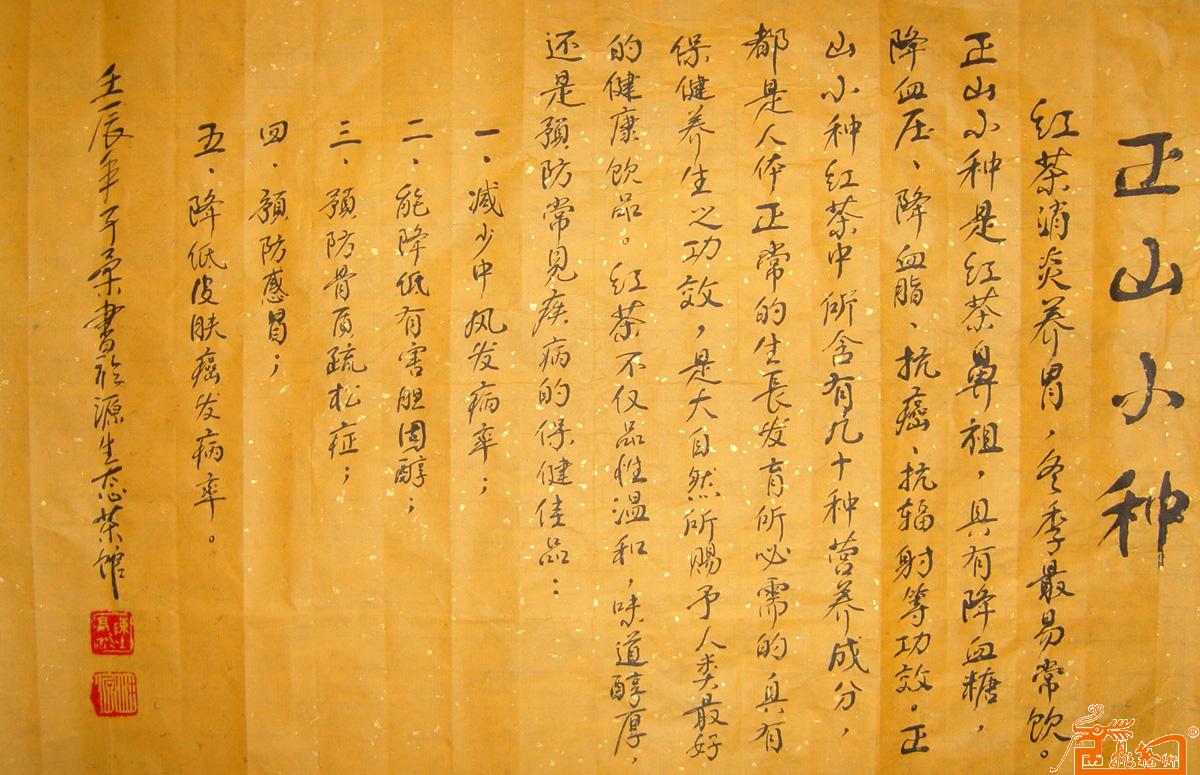 正山小种
红茶消炎养胃，冬季最易常饮。
正山小种是红茶鼻祖，具有降血糖，
降血压、降血脂、抗癌、抗辐射等功效。正
山小种红茶中所含有几十种营养成分，
都是人体正常的生長发育所必需的具有
保健养生之功效，是大自然所赐予人类最好
的健康饮品。红茶不仅品性温和，味道醇厚，
还是预防常见疾病的保健佳品：
一、减少中风发病率；
二、能降低有害胆固醇；
三、预防骨质疏松症；
四、预防感冒；
五、降低皮肤癌发病率。
壬辰年子柔書於源生态茶馆